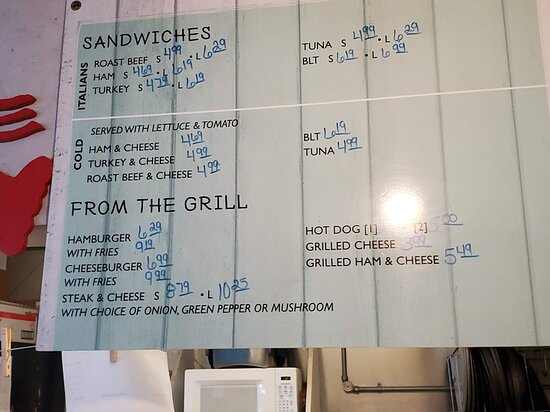 SANDWICHES
ITALIANS
ROAST BEEF S 4.99 • L 6.29
HAM S 4.69 • L 6.19
TURKEY S 4.79 • L 6.19
TUNA S 4.99 • L 6.29
BLT S 6.19 • L 6.99
COLD
SERVED WITH LETTUCE & TOMATO
HAM & CHEESE 4.69
TURKEY & CHEESE 4.99
ROAST BEEF & CHEESE 4.99
BLT 6.19
TUNA 4.99
FROM THE GRILL
HAMBURGER 6.29
WITH FRIES 9.19
CHEESEBURGER 6.99
WITH FRIES 9.99
STEAK & CHEESE S 8.79 • L 10.25
WITH CHOICE OF ONION, GREEN PEPPER OR MUSHROOM
HOT DOG [1] [2] 5.00
GRILLED CHEESE 3.99
GRILLED HAM & CHEESE 5.49